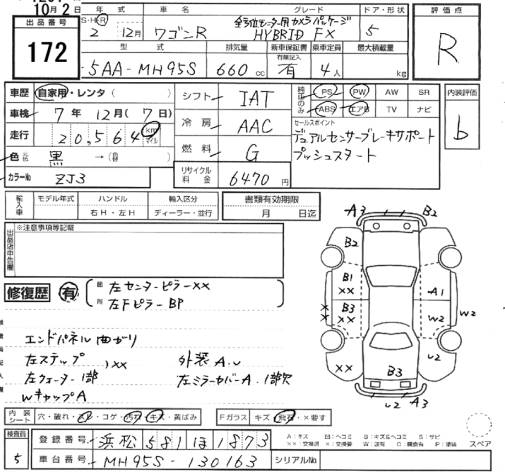 10月2
出品番号 172
年式 車名 グレード ドア・形状 評価点
S・H・R 2 12月 ワゴンR HYBRID FX 5 R
型式 排気量 新車保証書 乗車定員 最大積載量
5AA-MH95S 660 cc 有 4人 kg
車歴 自家用・レンタ( )
車検 7年 12月(7日)
走行 20,564 km マイル
色 黒 →( )
カラーNo ZJ3
シフト IAT
冷房 AAC
燃料 G
リサイクル料金 6470円
PS PW AW SR
ABS エアB TV ナビ
内装評価 b
セールスポイント
デュアルセンサーブレーキサポート
プッシュスタート
輸入車 モデル年式 ハンドル 輸入区分 書類有効期限
右H・左H ディーラー・並行 月 日迄
※注意事項等記載
修復歴 有 左センターピラーXX
左Fピラー BP
エンドパネル曲がり
左ステップ 外装A.U
左クォーター1部 XX 左ミラーカバーA.1部欠
WキャップA
A3 B2
B2 B2
B1 XX A1
B3 XX W2 W2
XX U2
B3
U2 A3
内装シート 穴・破れ・スレ・コゲ・汚れ・キズ・黄ばみ
Fガラス キズ・飛石・X要す
検査員 5
登録番号 浜松581ほ1873
車台番号 MH95S-130163 シリアルNo
スペア